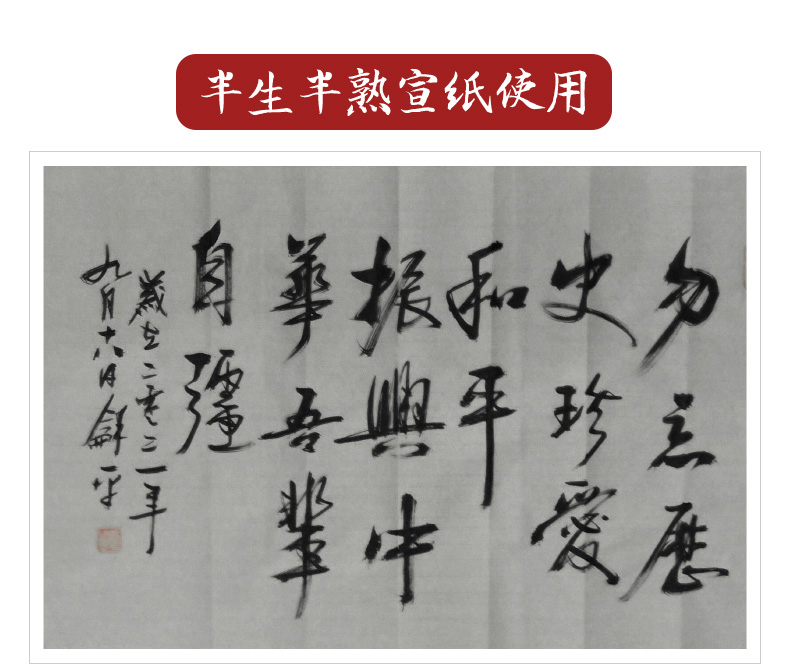 半生半熟宣纸使用
勿忘歷
史珍愛
和平
振興中
華吾輩
自彊
歲在二零二一年
九月十八日龢平